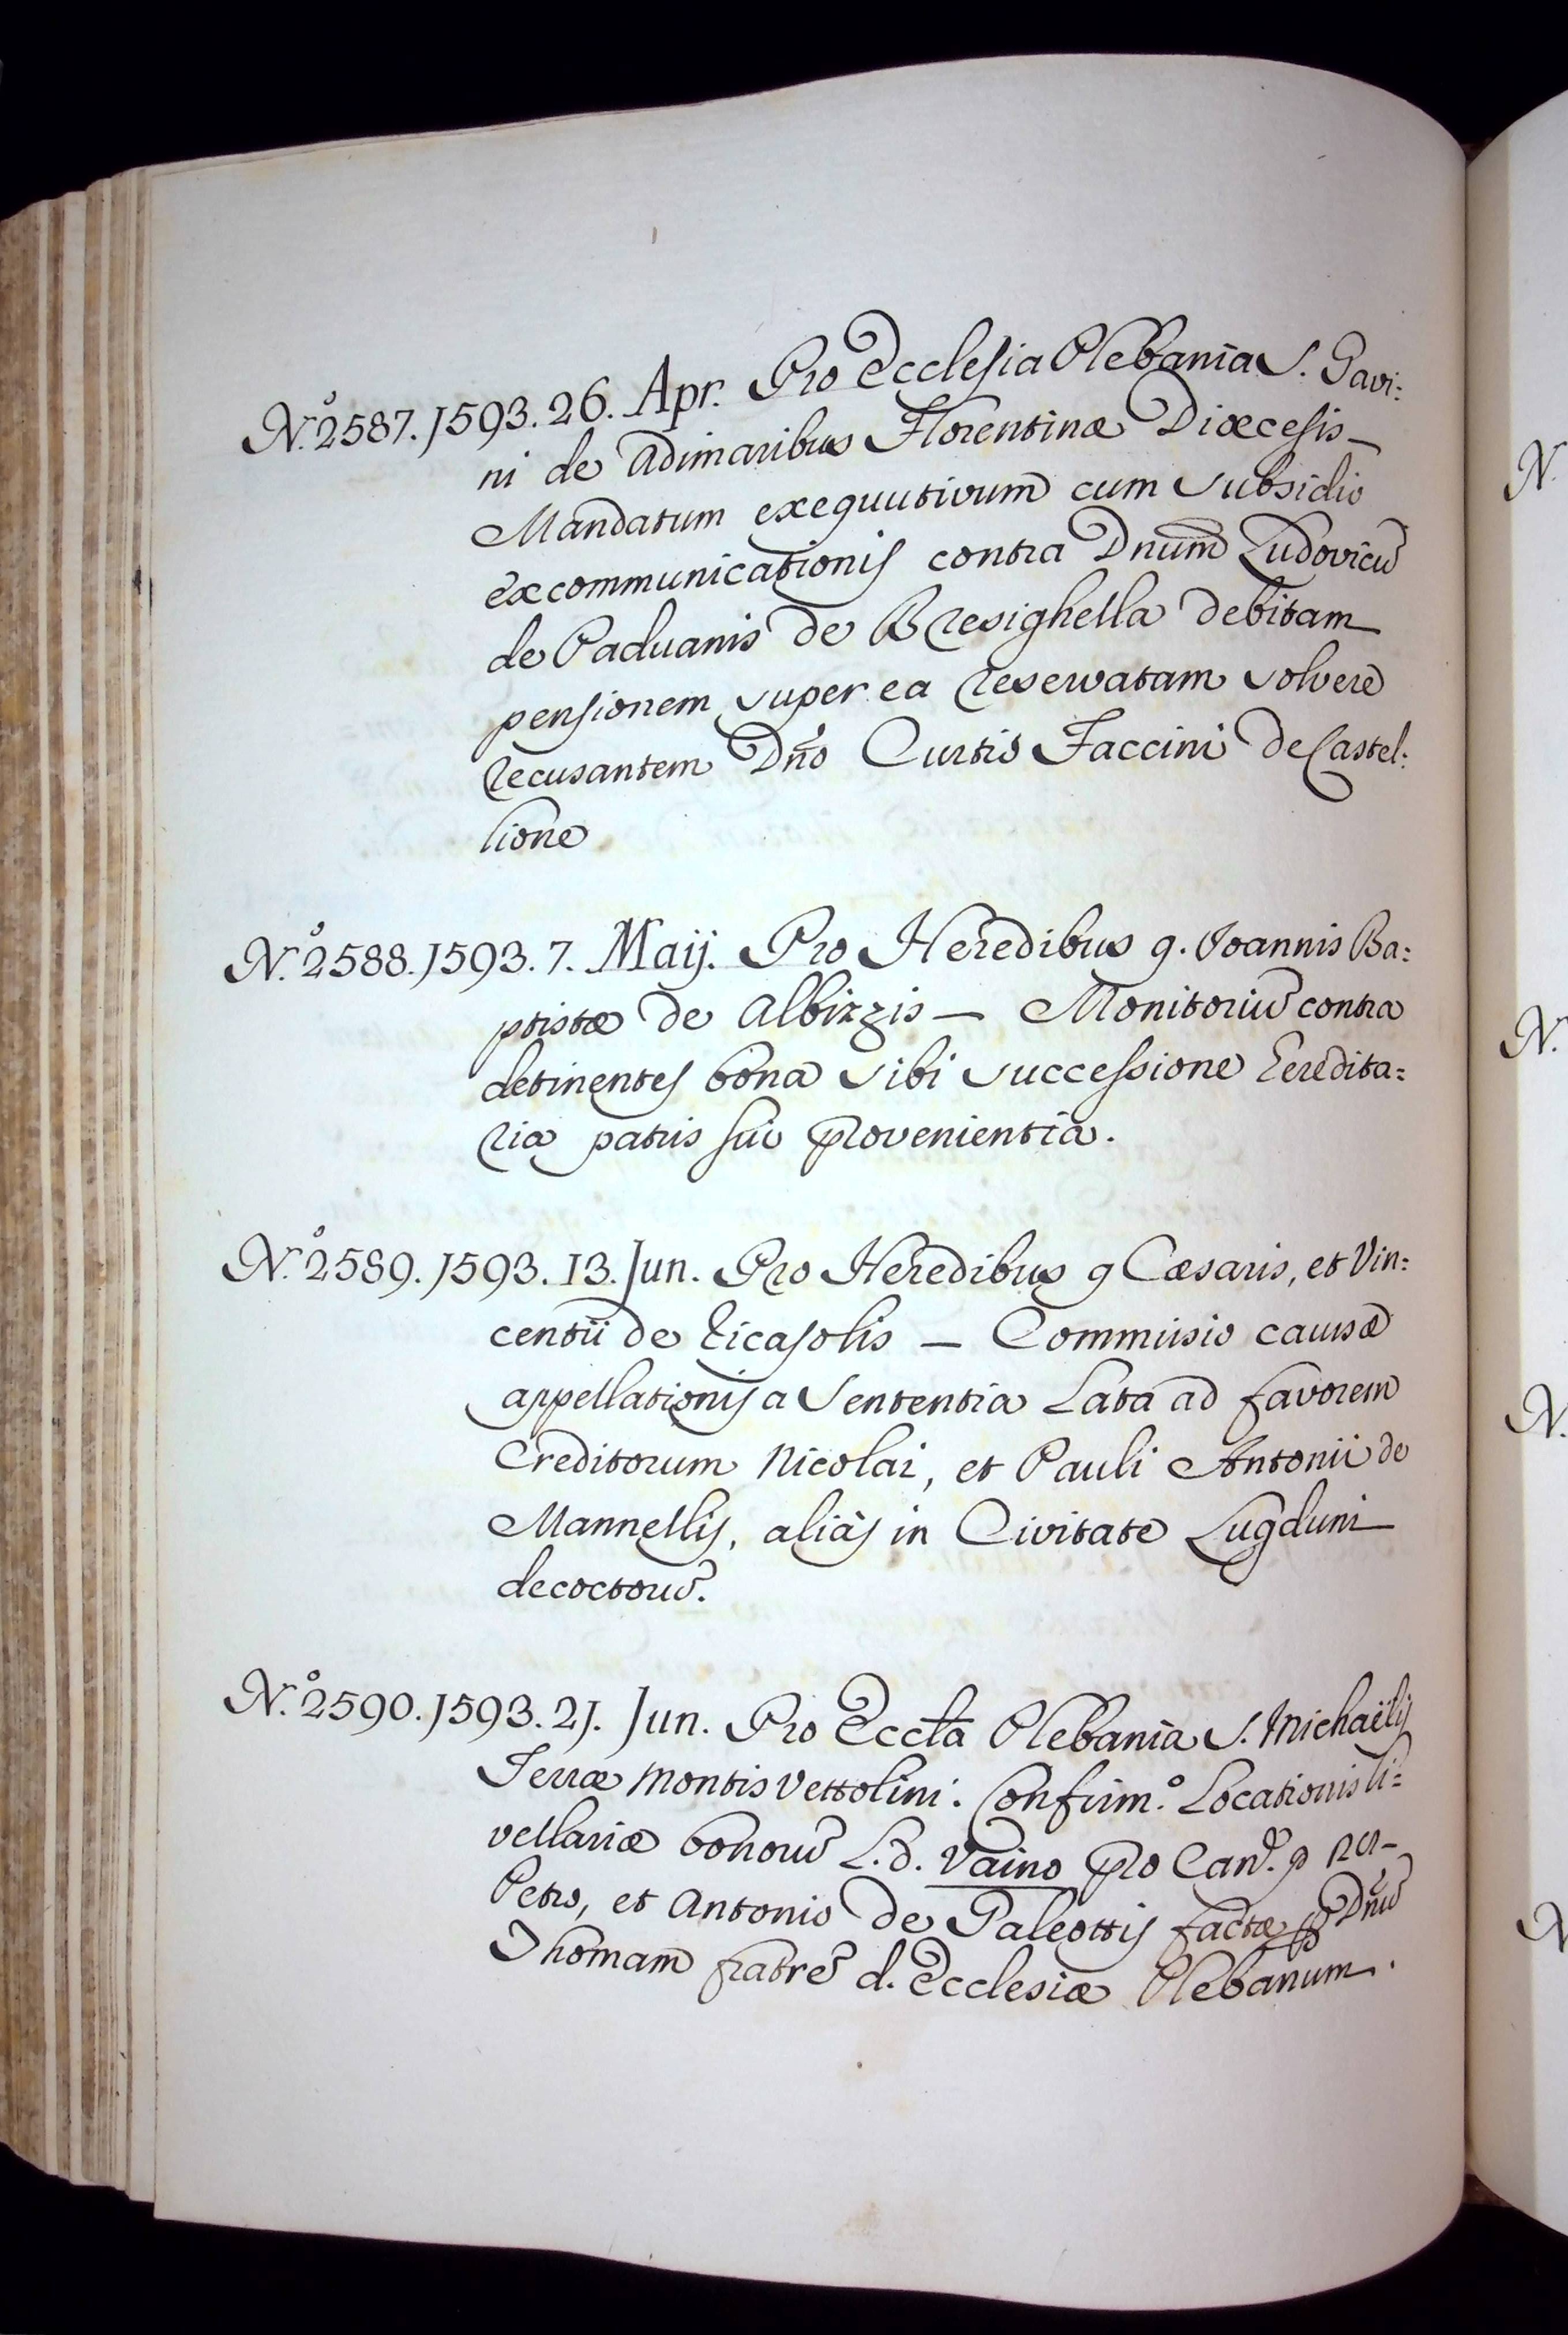 N.º 2587. 1593. 26. Apr. Pro Ecclesia Plebania S. Gavi:
ni de Adimaribus Florentinæ Diœcesis —
Mandatum exequutivum cum subsidio
excommunicationis contra Dnum Ludovicũ
de Paduanis de Bresighella debitam
pensionem super ea reservatam solvere
recusantem Dño Curtio Faccini de Castel:
lione
N.º 2588. 1593. 7. Maij. Pro Heredibus q. Joannis Ba:
ptistæ de Albizzis — Monitoriũ contra
detinentes bona sibi successione heredita:
ria patris sui provenientia.
N.º 2589. 1593. 13. Jun. Pro Heredibus q Cæsaris, et Vin:
centii de Ricasolis — Commissio causæ
appellationis a Sententia Lata ad favorem
Creditorum Nicolai, et Pauli Antonii de
Mannellis, aliàs in Civitate Lugduni
decoctorũ.
N.º 2590. 1593. 21. Jun. Pro Eccła Plebania S. Michaëlis
Terræ Montis Vettolini. Confirm.º Locationis li:
vellariæ bonorũ L.d. Vaino pro Can.
Petro, et Antonio de Galeottis factæ p Dñũ
Thomam fratrẽ d. Ecclesiæ Plebanum.
N.
N.
N.
N